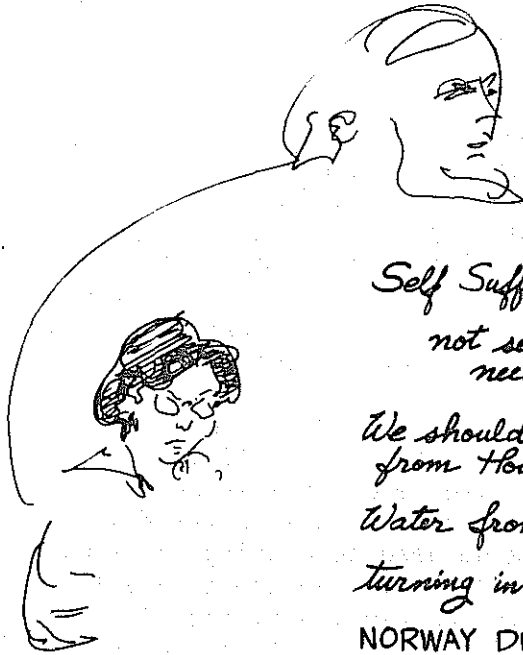 Self Suff
not se
nee
We should
from Hou
Water from
turning in
NORWAY D